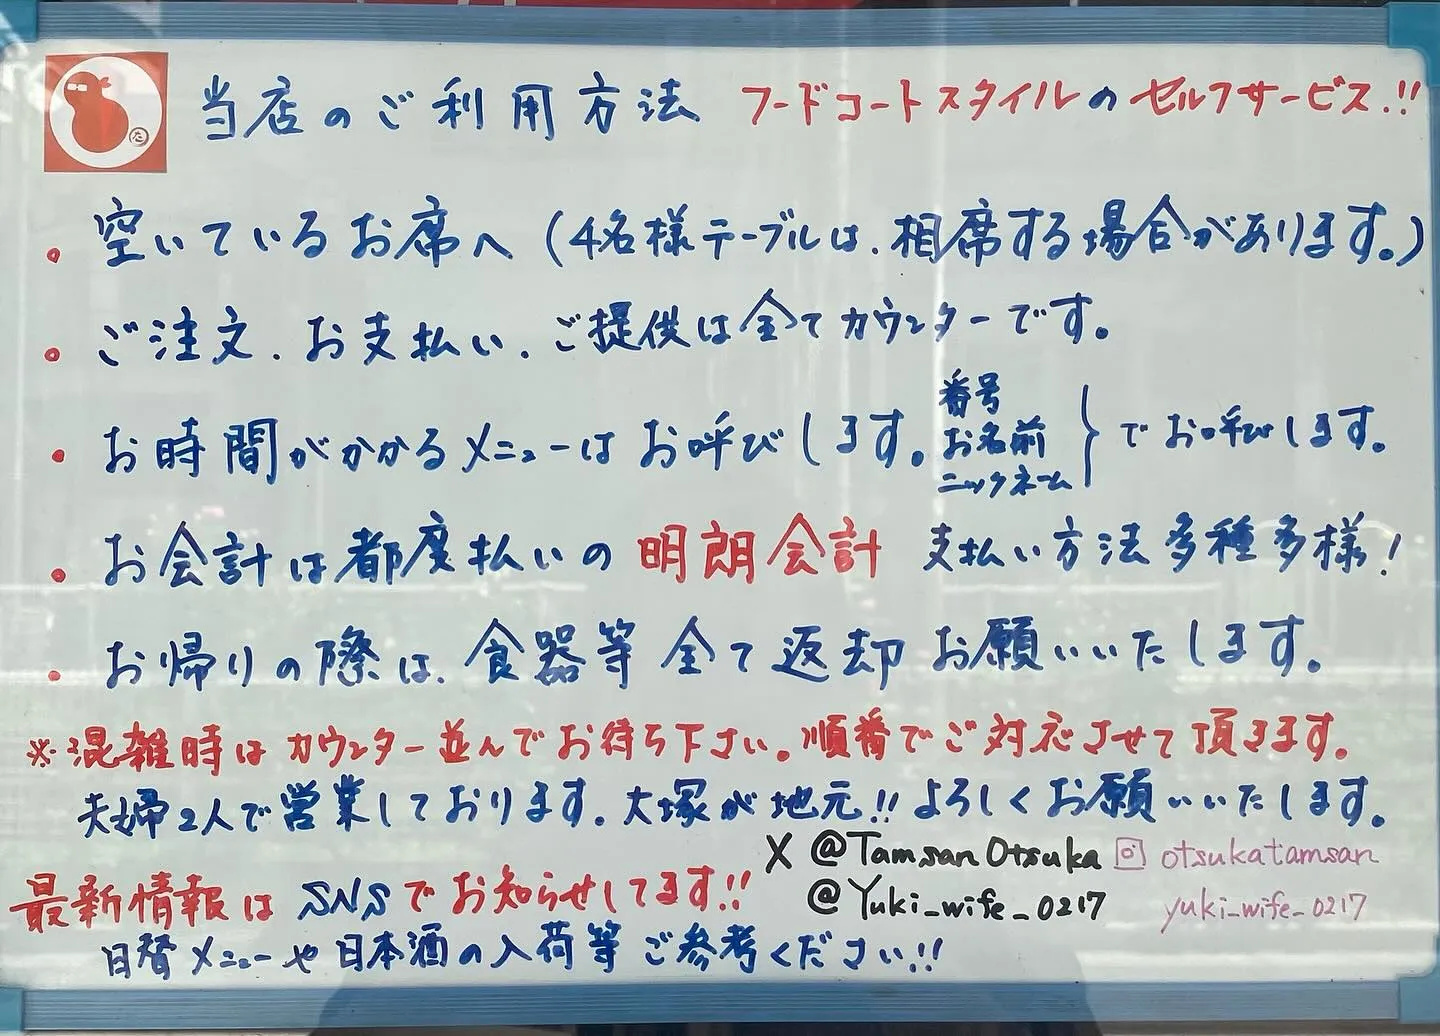 た
当店のご利用方法 フードコートスタイルのセルフサービス.!!
・空いているお席へ (4名様テーブルは、相席する場合があります。)
・ご注文、お支払い、ご提供は全てカウンターです。
・お時間がかかるメニューはお呼びします。
番号
お名前
ニックネーム
でお呼びします。
・お会計は都度払いの明朗会計 支払い方法多種多様!
・お帰りの際は、食器等全て返却お願いいたします。
※混雑時はカウンター並んでお待ち下さい。順番でご対応させて頂きます。
夫婦2人で営業しております。大塚が地元!!よろしくお願いいたします。
X @TamsanOtsuka otsukatamsan
@Yuki_wife_0217 yuki_wife_0217
最新情報はSNSでお知らせしてます!!
日替メニューや日本酒の入荷等ご参考ください!!